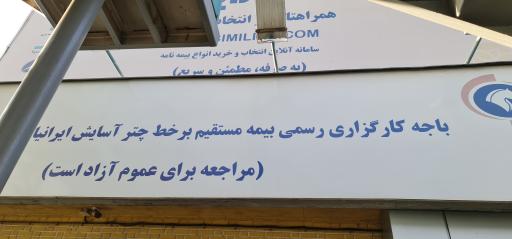 همراهتان در انتخاب
BIMILIN.COM
سامانه آنلاین انتخاب و خرید انواع بیمه نامه
(به صرفه، مطمئن و سریع)
باجه کارگزاری رسمی بیمه مستقیم برخط چتر آسایش ایرانیا
(مراجعه برای عموم آزاد است)